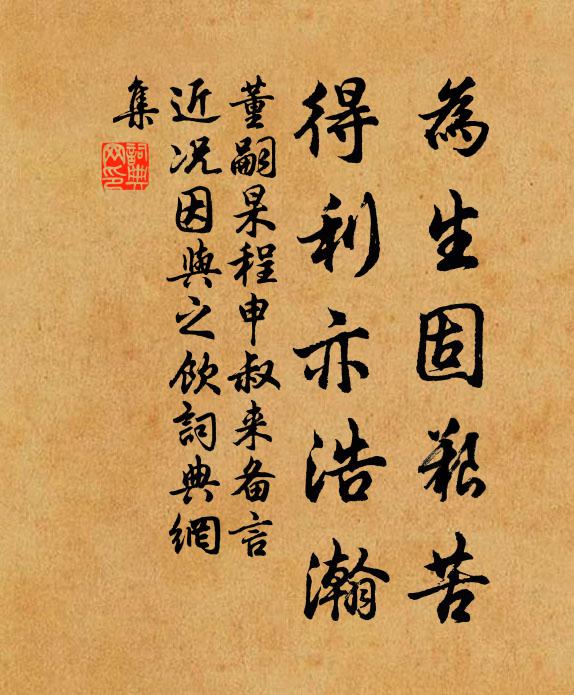 為生固艱苦
得利亦浩瀚
董嗣杲程申叔来备言
近况因與之飲詞典網
集
詞典網印